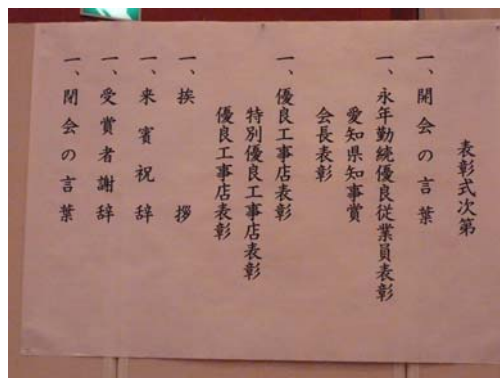 表彰式次第
一、開会の言葉
一、永年勤続優良従業員表彰
愛知県知事賞
会長表彰
一、優良工事店表彰
特別優良工事店表彰
優良工事店表彰
一、挨拶
一、来賓祝辞
一、受賞者謝辞
一、閉会の言葉